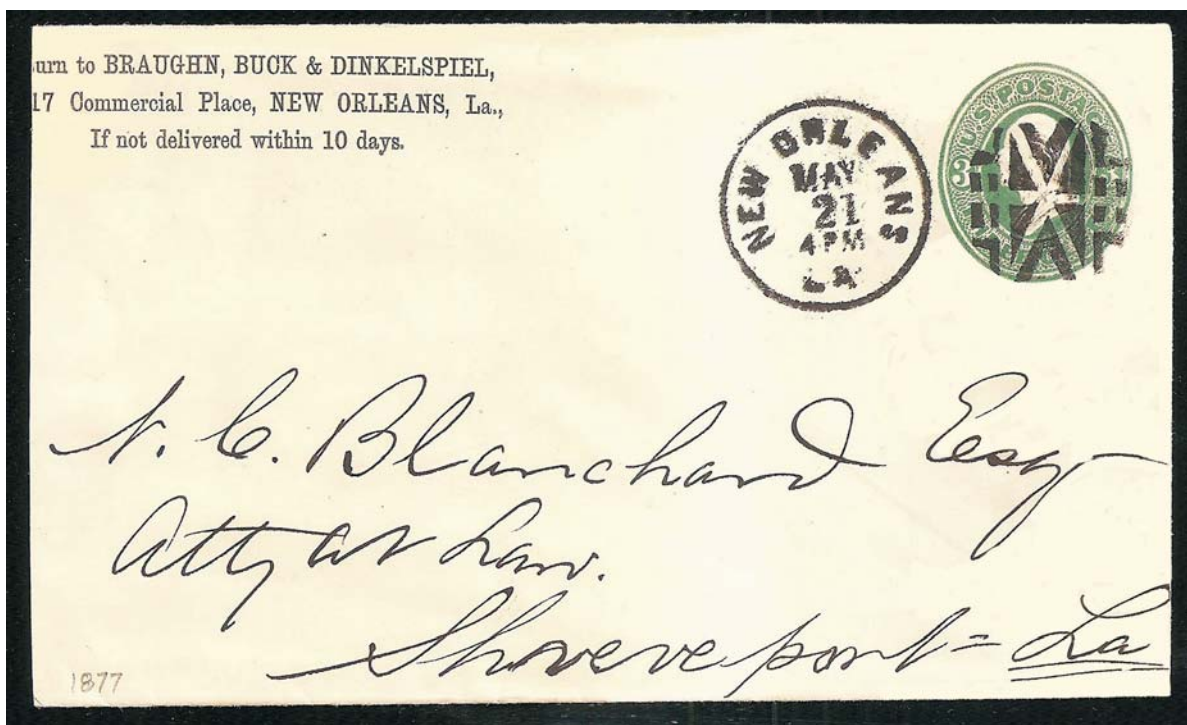 urn to BRAUGHN, BUCK & DINKELSPIEL,
17 Commercial Place, NEW ORLEANS, La.,
If not delivered within 10 days.
NEW ORLEANS
MAY
21
4 PM
LA
U.S. POSTAGE
3
N. C. Blanchard Esq
Atty at Law.
Shreveport = La
1877